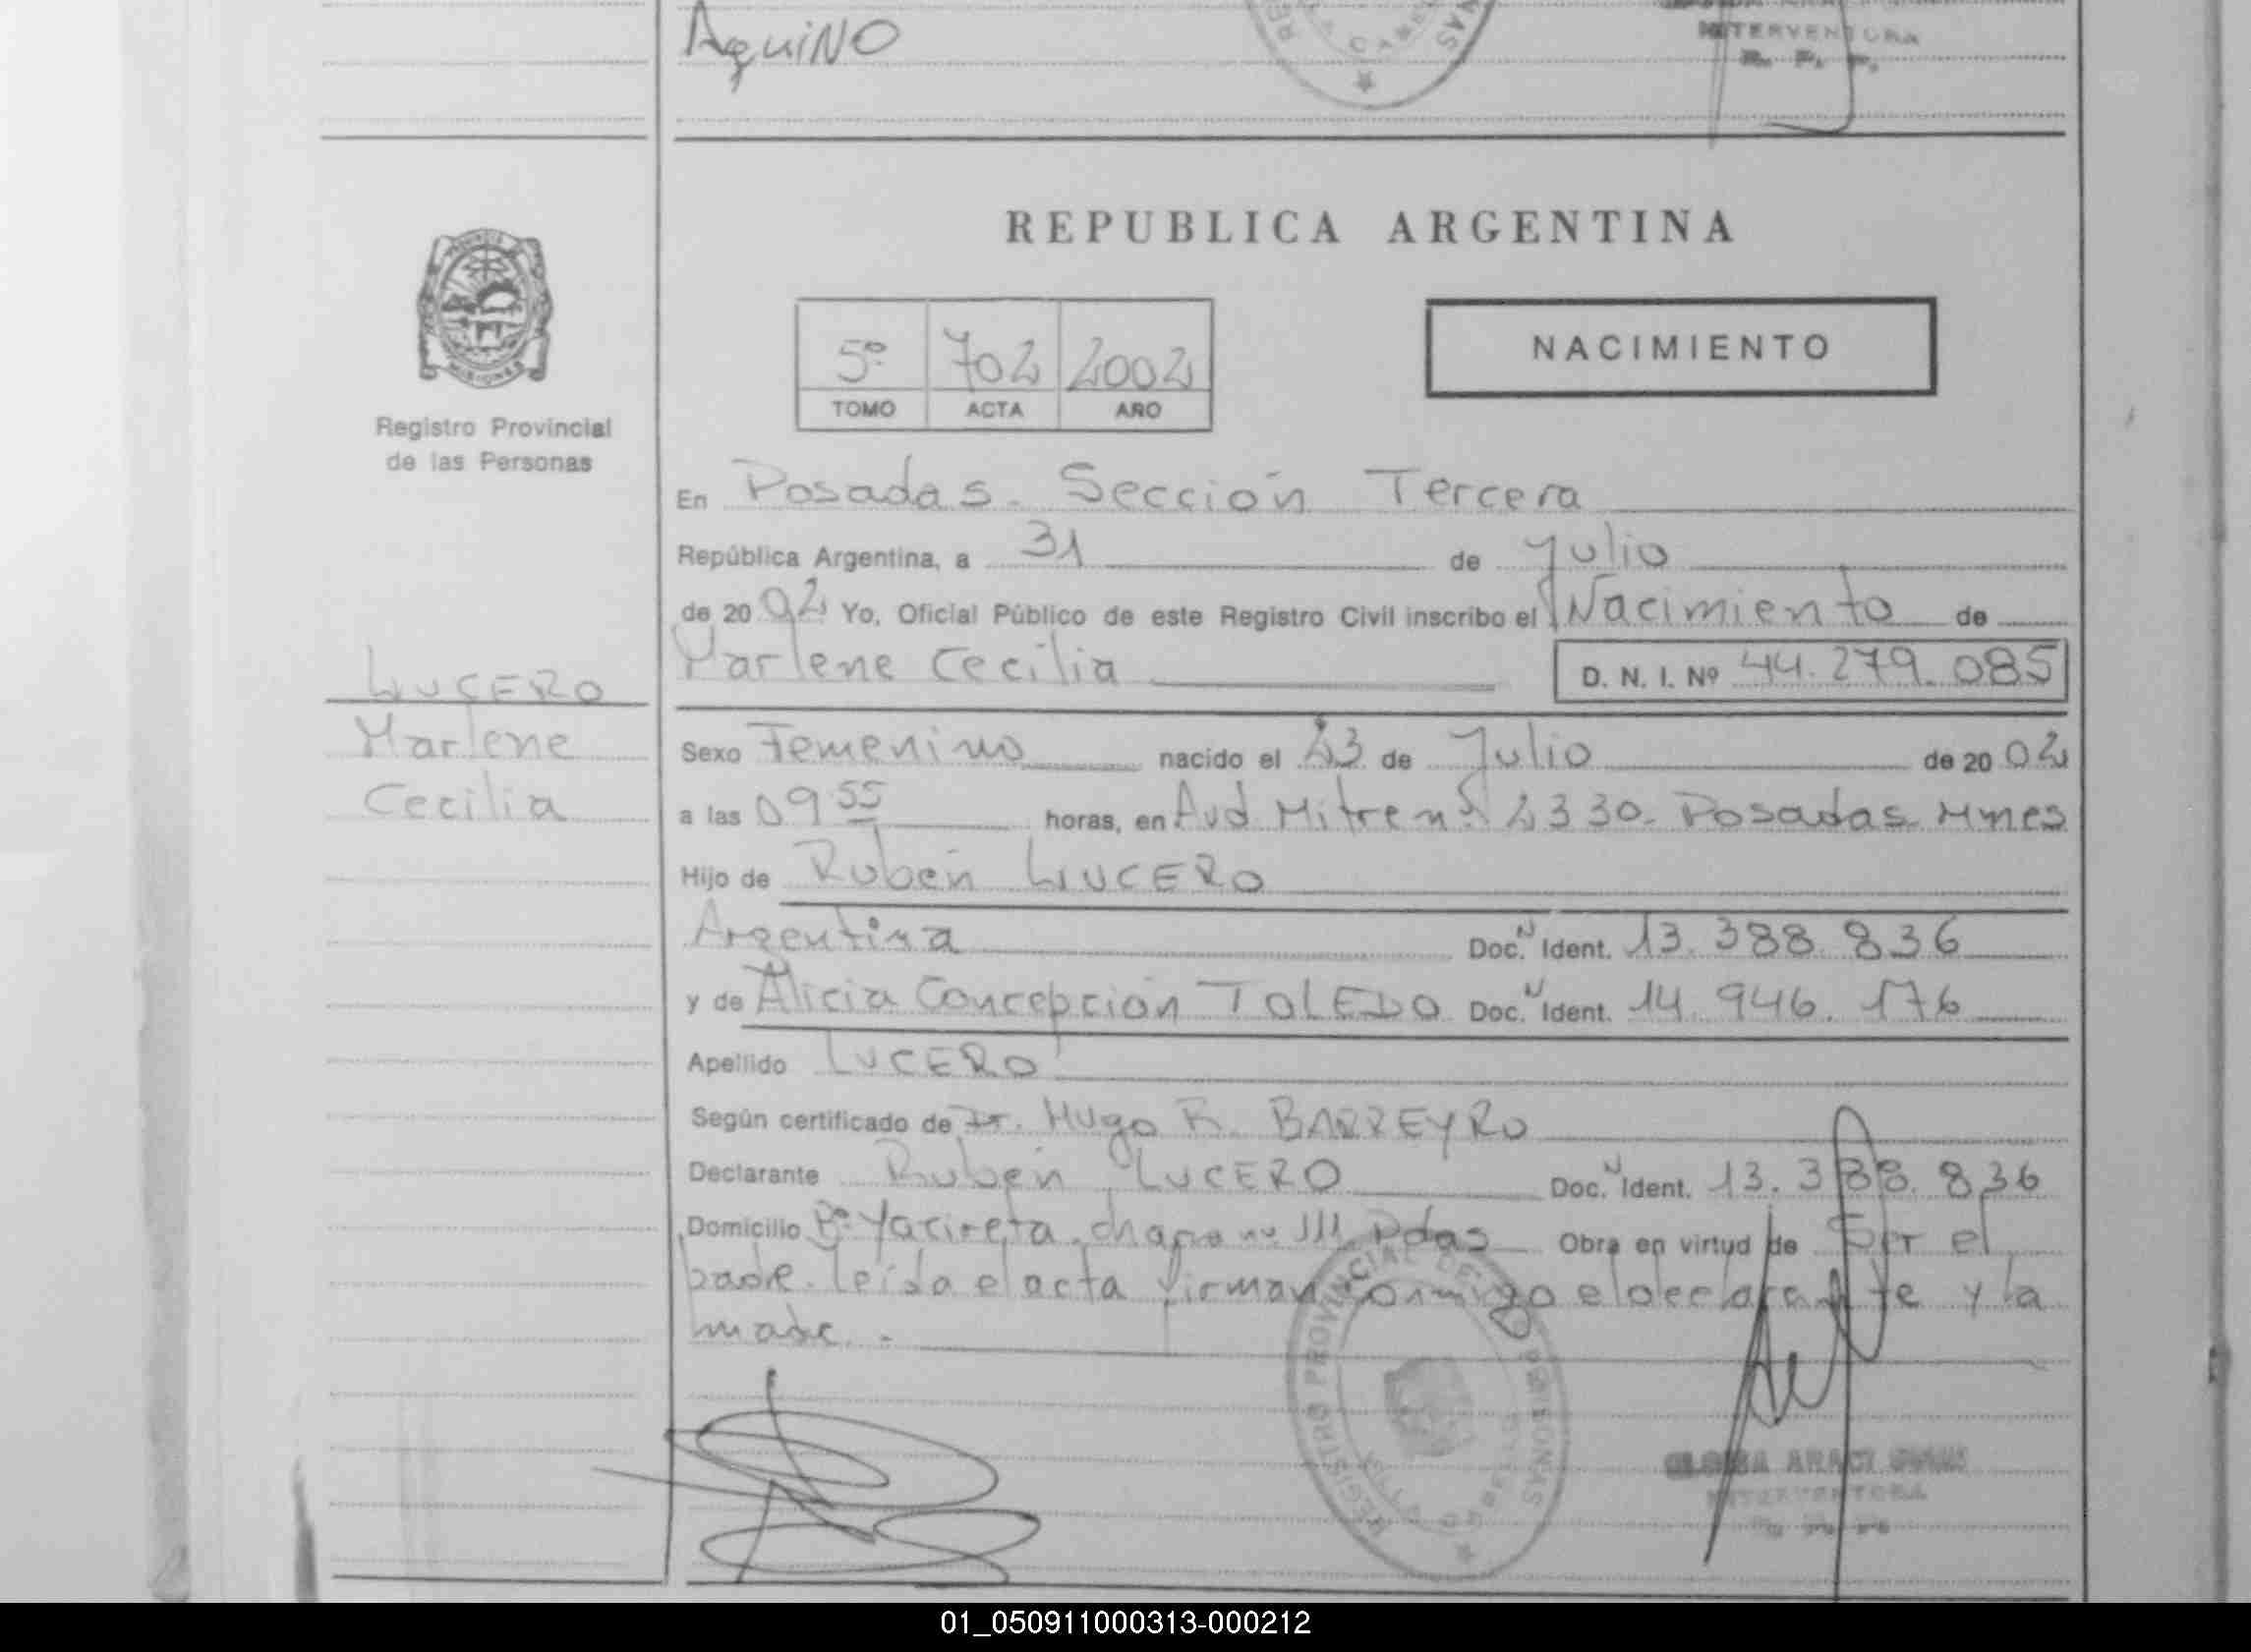 AquiNO
INTERVENTORA
R. P. P.
REPUBLICA ARGENTINA
5º 702 2002
TOMO ACTA AÑO
NACIMIENTO
MISIONES
Registro Provincial
de las Personas
En Posadas. Sección Tercera
República Argentina, a 31 de Julio
de 20 02 Yo, Oficial Público de este Registro Civil inscribo el Nacimiento de
Marlene Cecilia D. N. I. Nº 44.279.085
LUCERO
Marlene
Cecilia
Sexo Femenino nacido el 23 de Julio de 20 02
a las 09 55 horas, en Avd Mitre nº 2330. Posadas Mnes
Hijo de Rubén LUCERO
Argentina Doc. N Ident. 13.388.836
y de Alicia Concepción TOLEDO Doc. N Ident. 14.946.176
Apellido LUCERO
Según certificado de Dr. Hugo R. BARREYRO
Declarante Rubén LUCERO Doc. N Ident. 13.388.836
Domicilio Bº Yacireta. chacra nº 111 Pdas Obra en virtud de Ser el
padre. leída el acta firman conmigo el declarante y la
madre.-
REGISTRO PROVINCIAL DE PERSONAS
INTERVENTORA
01_050911000313-000212